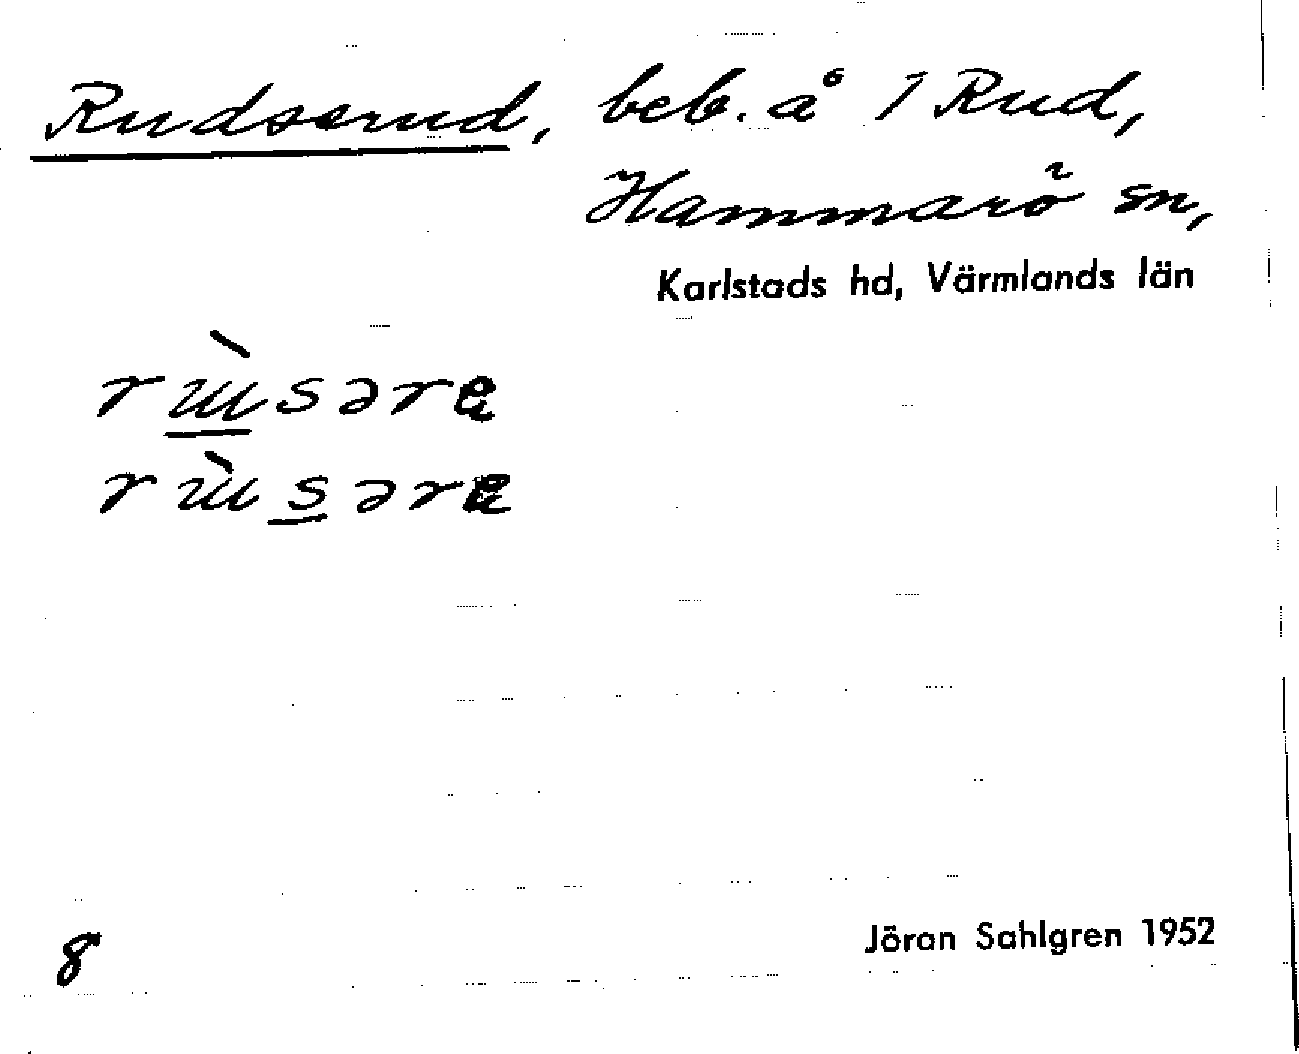 Rudserud, beb. å 1 Rud,
Hammarö sn,
Karlstads hd, Värmlands län
8
Jöran Sahlgren 1952